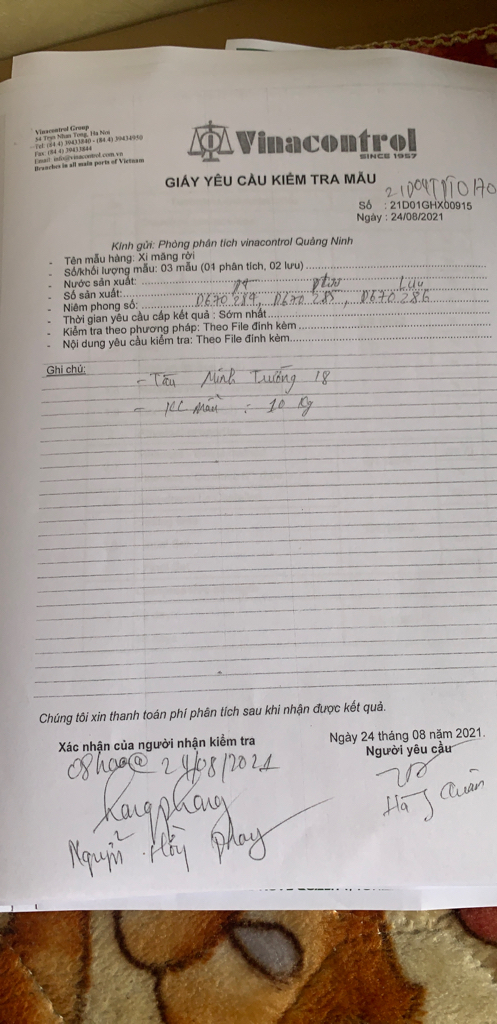 Vinacontrol Group
54 Tran Nhan Tong, Ha Noi
Tel: (84.4) 39433840 - (84.4) 39434950
Fax: (84.4) 39433844
Email: info@vinacontrol.com.vn
Branches in all main ports of Vietnam
Vinacontrol
SINCE 1957
GIẤY YÊU CẦU KIỂM TRA MẪU
Số : 21D01GHX00915
Ngày : 24/08/2021
Kính gửi: Phòng phân tích vinacontrol Quảng Ninh
- Tên mẫu hàng: Xi măng rời
- Số/khối lượng mẫu: 03 mẫu (01 phân tích, 02 lưu)
- Nước sản xuất: PT Lưu Lưu
- Số sản xuất:
- Niêm phong số: D670.284, D670.285, D670.286
- Thời gian yêu cầu cấp kết quả : Sớm nhất
- Kiểm tra theo phương pháp: Theo File đính kèm
- Nội dung yêu cầu kiểm tra: Theo File đính kèm
Ghi chú:
- Tàu Minh Trường 18
- KL mẫu : 10 Kg
Chúng tôi xin thanh toán phí phân tích sau khi nhận được kết quả.
Ngày 24 tháng 08 năm 2021.
Xác nhận của người nhận kiểm tra
Người yêu cầu
08h00 24/08/2021
Nguyễn Hồng Phong